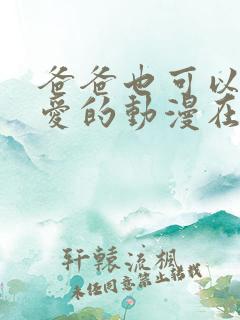 爸爸也可以
愛的動漫在
轩辕流枫
未经同意禁止转载